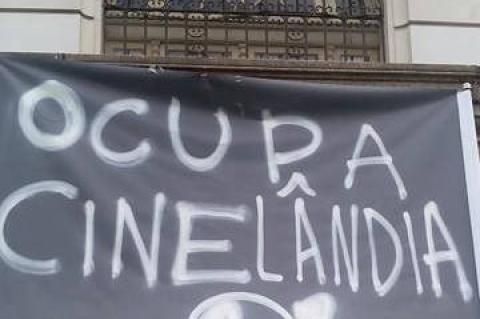 OCUPA
CINELÂNDIA